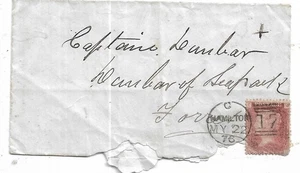 Captain Dunbar
Dunbar of Seapark
For
C
HAMILTON
MY 22
75
17